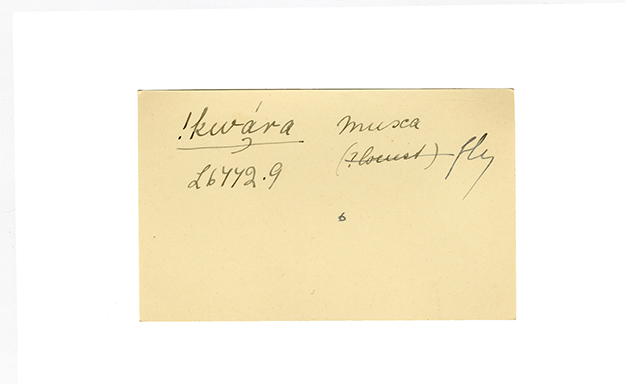 !kwára musca
L6772.9 (?locust) fly
6